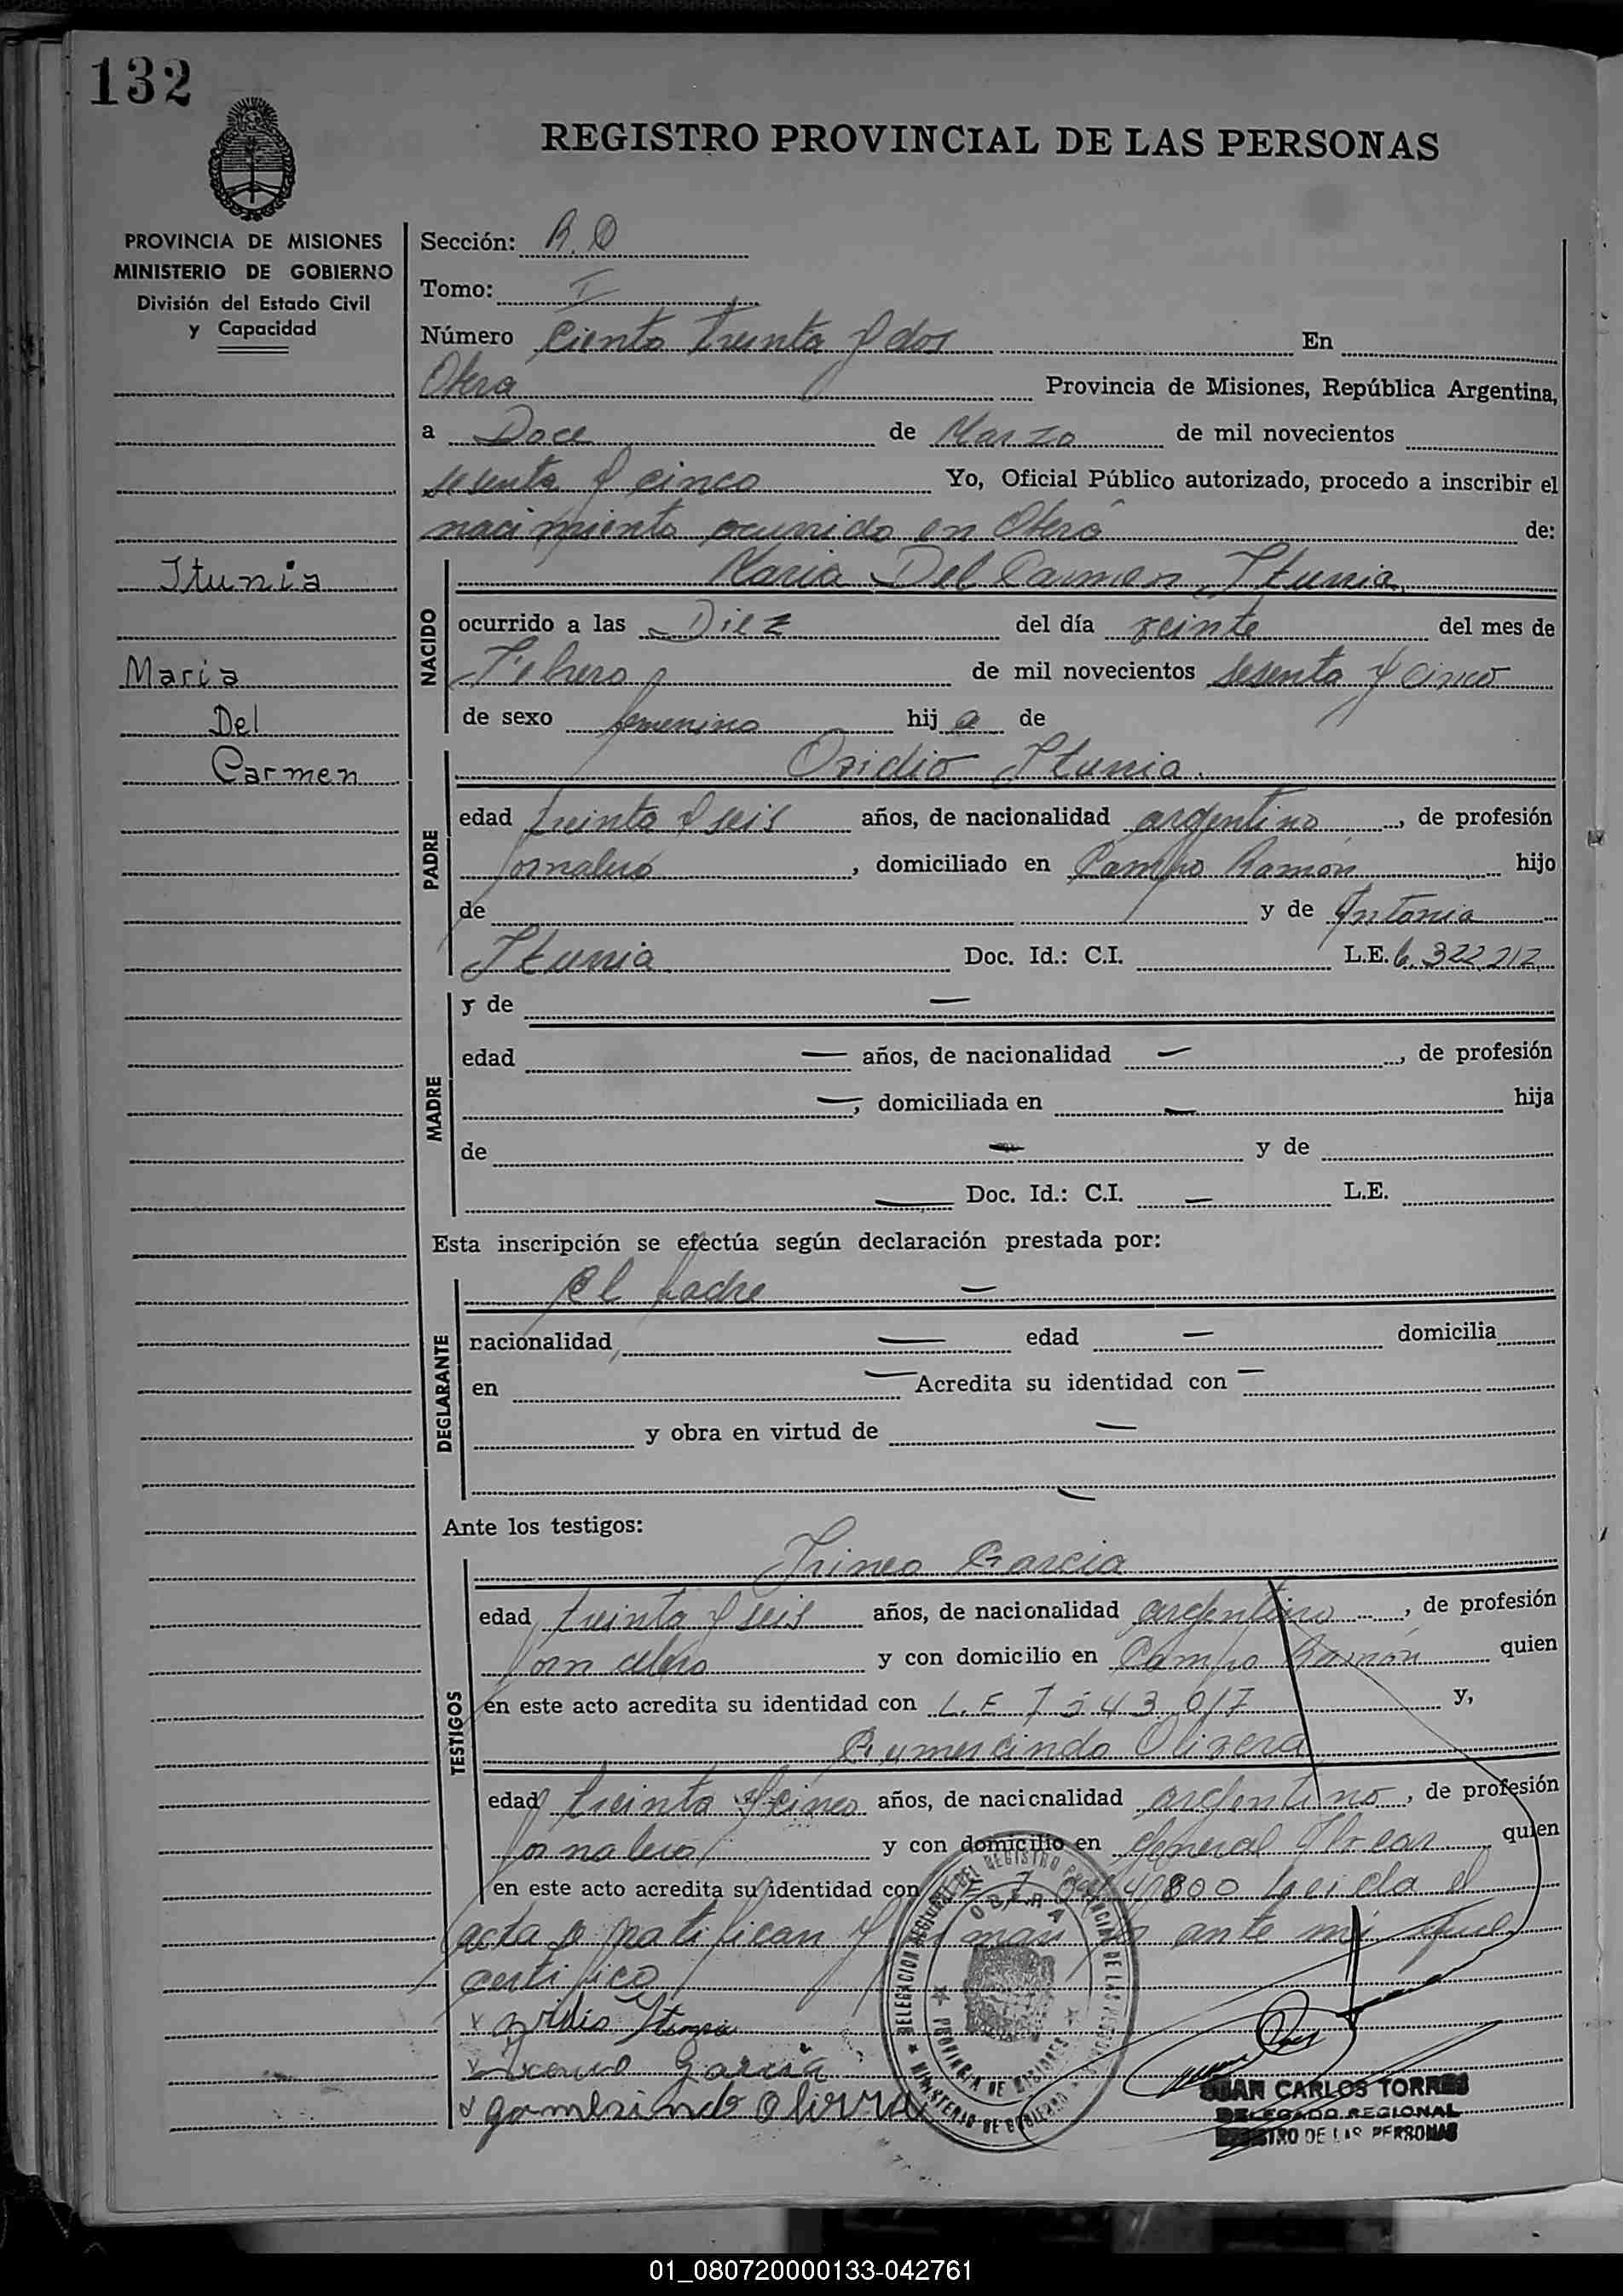 132
REGISTRO PROVINCIAL DE LAS PERSONAS
PROVINCIA DE MISIONES
MINISTERIO DE GOBIERNO
División del Estado Civil
y Capacidad
Itunia
Maria
Del
Carmen
Sección:
Tomo: I
Número Ciento treinta y dos En
Obera Provincia de Misiones, República Argentina,
a Doce de Marzo de mil novecientos
sesenta y cinco Yo, Oficial Público autorizado, procedo a inscribir el
nacimiento ocurrido en Oberá de:
NACIDO
Maria Del Carmen Itunia
ocurrido a las Diez del día veinte del mes de
Febrero de mil novecientos sesenta y cinco
de sexo femenino hij a de
PADRE
Ovidio Itunia.
edad treinta y seis años, de nacionalidad argentino, de profesión
Jornalero, domiciliado en Campo Ramón hijo
de y de Antonia
Itunia Doc. Id.: C.I. L.E. 6.322.212
MADRE
y de —
edad — años, de nacionalidad —, de profesión
—, domiciliada en — hija
de — y de
— Doc. Id.: C.I. — L.E.
Esta inscripción se efectúa según declaración prestada por:
DECLARANTE
El padre —
nacionalidad, — edad — domicilia
en — Acredita su identidad con —
y obra en virtud de —
—
Ante los testigos:
TESTIGOS
Irineo Garcia
edad treinta y seis años, de nacionalidad argentino, de profesión
Jornalero y con domicilio en Campo Ramón quien
en este acto acredita su identidad con L.E 7.543.017 y,
Gumercindo Olivera
edad treinta y cinco años, de nacionalidad argentino, de profesión
Jornalero y con domicilio en General Alvear quien
en este acto acredita su identidad con 800 Leida el
acta se ratifican y ante mi que
certifico
x Itunia
x Garcia
x gomersindo Olivera
DELEGACION REGIONAL DEL REGISTRO PROVINCIAL DE LAS PERSONAS
OBERA
PROVINCIA DE MISIONES
MINISTERIO DE GOBIERNO
JUAN CARLOS TORRES
DELEGADO REGIONAL
REGISTRO DE LAS PERSONAS
01_080720000133-042761